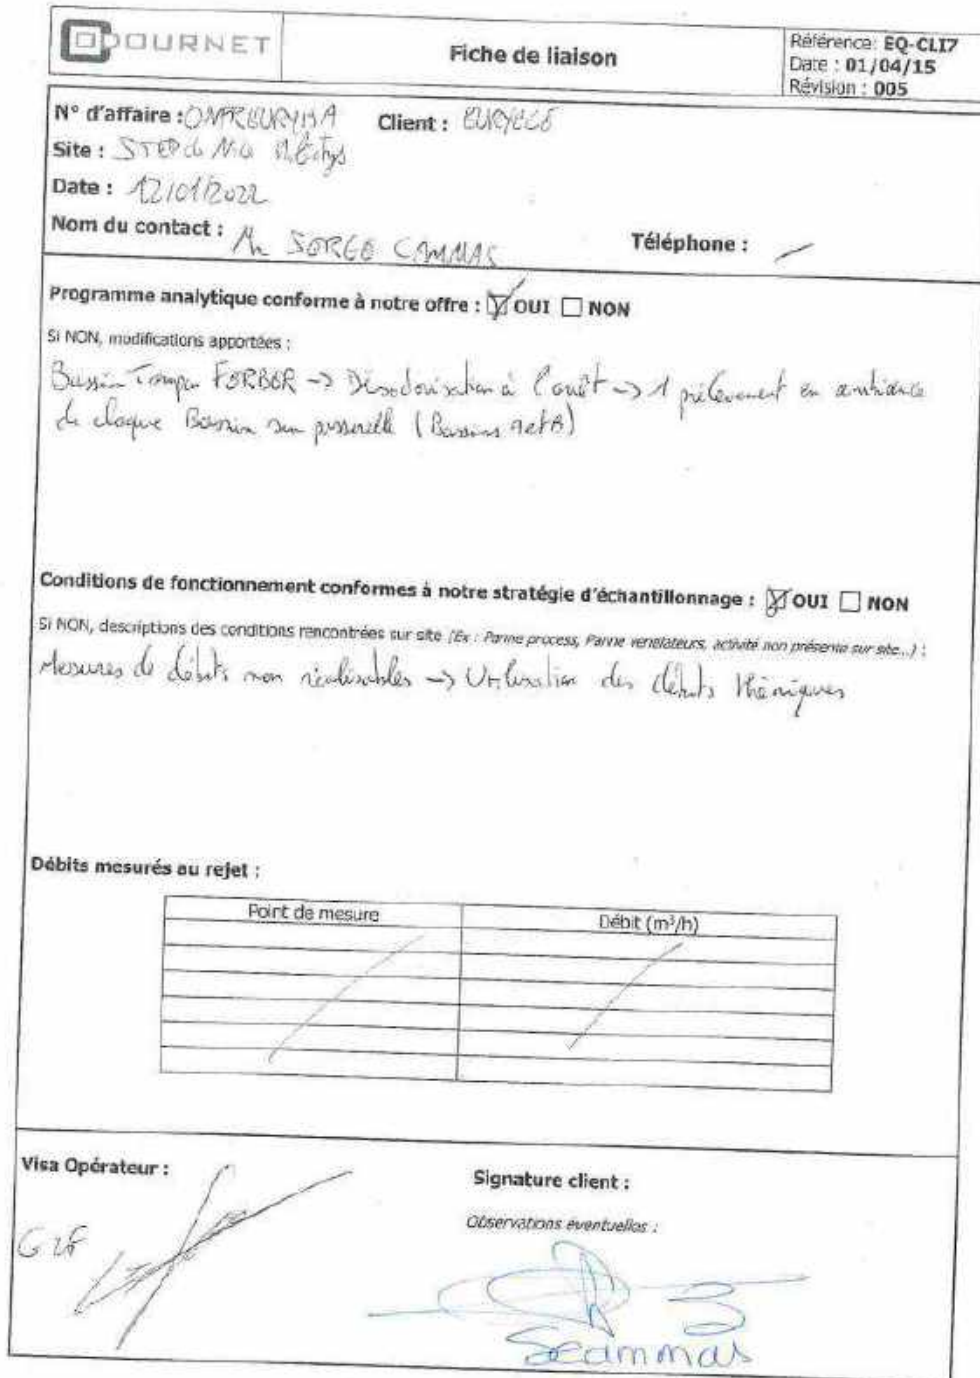 ODOURNET
Fiche de liaison
Référence: EQ-CLI7
Date : 01/04/15
Révision : 005
N° d'affaire : Client :
Site : STEP de
Date : 12/01/2022
Nom du contact : Mr SERGE CAMMAS Téléphone : /
Programme analytique conforme à notre offre : ☒ OUI ☐ NON
Si NON, modifications apportées :
Bassin Tampon -> Désodorisation à l'arrêt -> 1 prélèvement en ambiance
de chaque Bassin sur passerelle (Bassins A et B)
Conditions de fonctionnement conformes à notre stratégie d'échantillonnage : ☒ OUI ☐ NON
Si NON, descriptions des conditions rencontrées sur site (Ex : Panne process, Panne ventilateurs, activité non présente sur site...) :
Mesures de débits non réalisables -> Utilisation des débits théoriques
Débits mesurés au rejet :
Point de mesure Débit (m³/h)
Visa Opérateur : Signature client :
Observations éventuelles :
Scammas